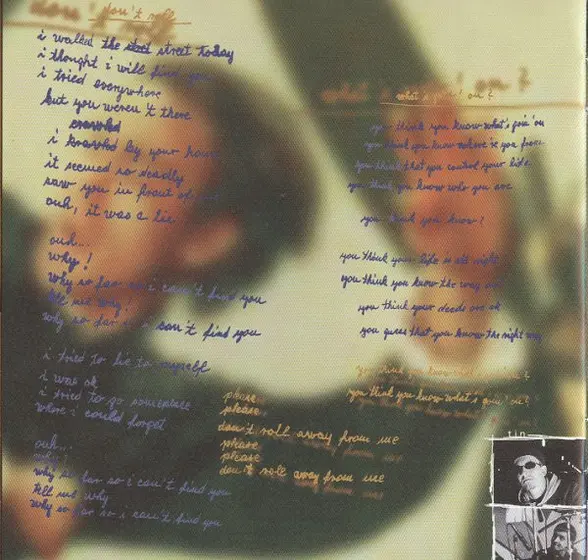 don't roll
i walked the street today
i thought i will find you
i tried everywhere
but you weren't there
i krawled by your
it seemed so deadly
saw you in front of
ouh, it was a lie
ouh...
why!
why so far so i can't find you
tell me why!
why so far so i can't find you
i tried to lie to myself
i was ok
i tried to go someplace
where i could forget
ouh...
why!
why so far so i can't find you
tell me why
why so far so i can't find you
please
please
don't roll away from me
please
please
don't roll away from me
what's goin' on?
you think you know what's goin' on
you think you know where're you from
you think that you control your life
you think you know who you are
you think you know!
you think your life is all right
you think you know the way
you think your deeds are ok
you guess that you know the right way
you think you know what's goin' on?
you think you know what's goin' on?